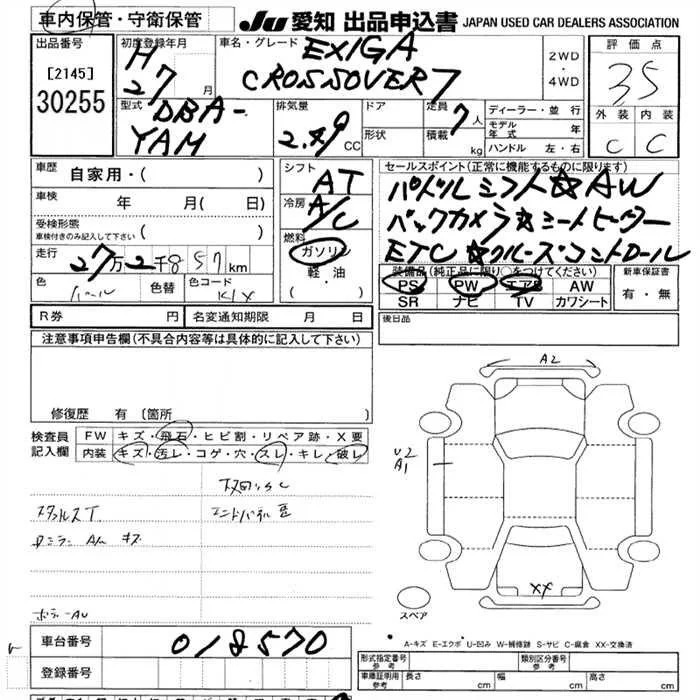 車内保管・守衛保管
JU 愛知 出品申込書 JAPAN USED CAR DEALERS ASSOCIATION
出品番号
[2145]
30255
初度登録年月
H
27 月
車名・グレード
EXIGA
CROSSOVER 7
2WD
・
4WD
評価点
3.5
外装 内装
C C
型式
DBA-
YAM
排気量
2.49 CC
ドア
形状
定員 7 人
積載 kg
ディーラー・並行
モデル年式 年
ハンドル 左・右
車歴
自家用・( )
車検 年 月( 日)
受検形態
車検付きのみ記入して下さい ( )
走行 27万2千857km
色 パール 色替 色コード K1X
シフト
AT
冷房
A/C
燃料
ガソリン
軽・油
・( )
セールスポイント(正常に機能するものに限ります)
パドルシフト☆AW
バックカメラ☆シートヒーター
ETC☆クルーズコントロール
装備品(純正品に限り○をつけてください)
PS PW エアB AW
SR ナビ TV カワシート
新車保証書
有・無
R券 円 名変通知期限 月 日
後日品
注意事項申告欄(不具合内容等は具体的に記入して下さい)
修復歴 有〔箇所 〕
検査員
記入欄
FW キズ・飛石・ヒビ割・リペア跡・X要
内装 キズ・汚レ・コゲ・穴・スレ・キレ・破レ
スタッドレスT
エンドパネル
キズ
ボデーAU
A2
U2
A1
XX
スペア
A-キズ E-エクボ U-凹み W-補修跡 S-サビ C-腐食 XX-交換済
車台番号 018570
登録番号
形式指定番号
参考
類別区分番号
参考
車庫証明用
参考
長さ cm 幅 cm 高さ cm